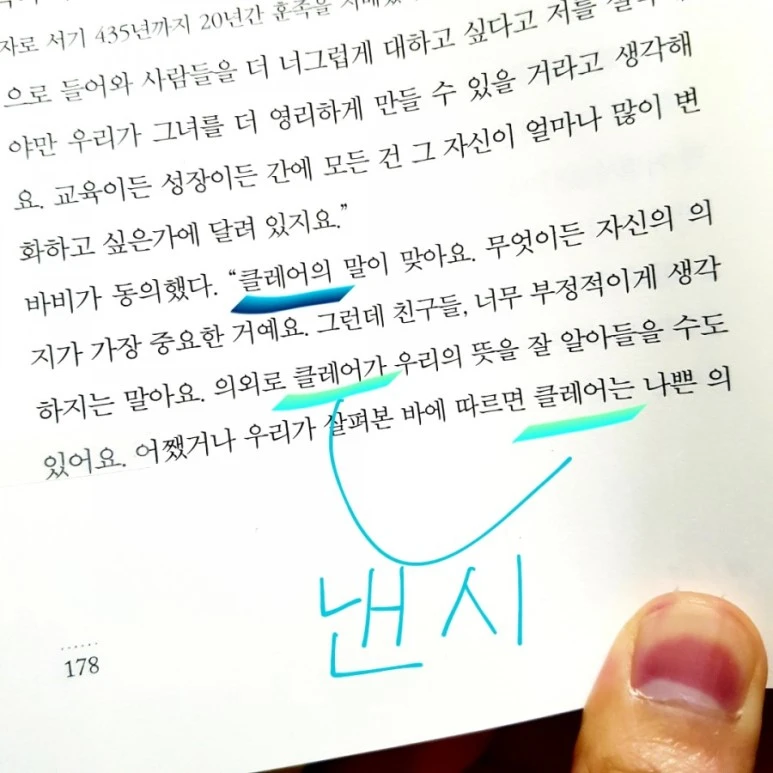 자로 서기 435년까지 20년간 훈족을
으로 들어와 사람들을 더 너그럽게 대하고 싶다고 저를
야만 우리가 그녀를 더 영리하게 만들 수 있을 거라고 생각해
요. 교육이든 성장이든 간에 모든 건 그 자신이 얼마나 많이 변
화하고 싶은가에 달려 있지요.”
바비가 동의했다. “클레어의 말이 맞아요. 무엇이든 자신의 의
지가 가장 중요한 거예요. 그런데 친구들, 너무 부정적이게 생각
하지는 말아요. 의외로 클레어가 우리의 뜻을 잘 알아들을 수도
있어요. 어쨌거나 우리가 살펴본 바에 따르면 클레어는 나쁜 의
낸시
178